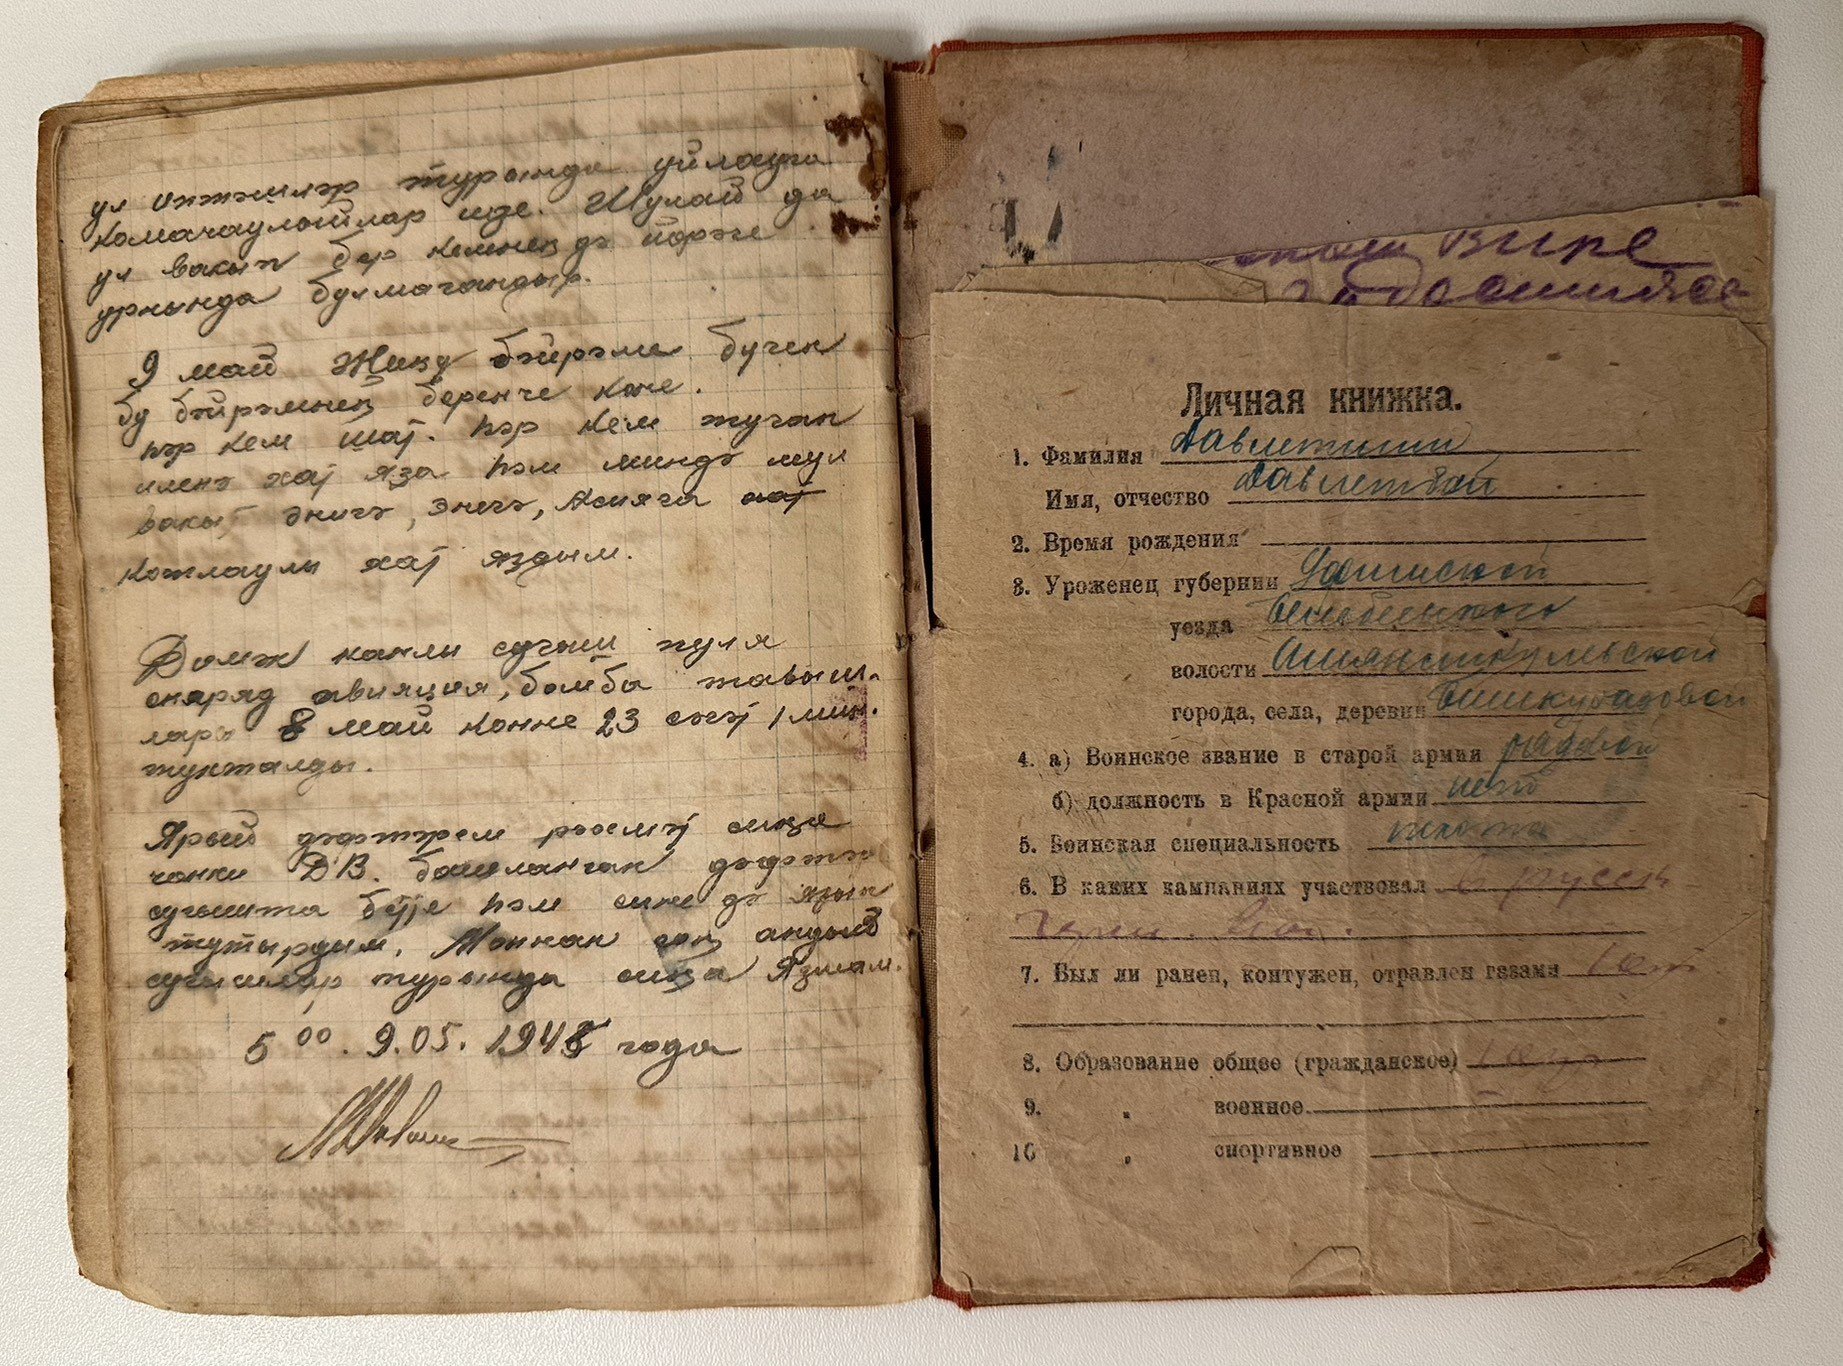 ул интэшлэр турында уйлауга
комачауламыйлар иде. Шулай да
ул вакыт бер кемнең дә йөрәге
урнында булмагандыр.
9 май Жиңү бәйрәме бүген
бу бәйрәмнең беренче көне.
һәр кем шат. һәр кем туган
иленә хат яза һәм миндә шул
вакыт әнигә, әтигә, Асияга хат
котлаулы хат яздым.
канлы сугыш пуля
снаряд авияция, бомба тавыш-
лары 8 май көнне 23 сәгәт 1 мин.
тукталды.
Ярый дәфтәрем рәхмәт сиңа
чөнки ДВ. башланган дәфтәр
сугышта бетте һәм сине дә язып
тутырдым. Моннан соң андый
сугышлар турында сиңа язмам.
5 00. 9.05. 1945 года
Личная книжка.
1. Фамилия Давлетшин
Имя, отчество Давлетбай
2. Время рождения
3. Уроженец губернии Уфимской
уезда Белебеевского
волости
города, села, деревни
4. а) Воинское звание в старой армии рядовой
б) должность в Красной армии нет
5. Воинская специальность пехота
6. В каких кампаниях участвовал в русск
герм.
7. Был ли ранен, контужен, отравлен газами
8. Образование общее (гражданское)
9. „ военное
10 „ спортивное